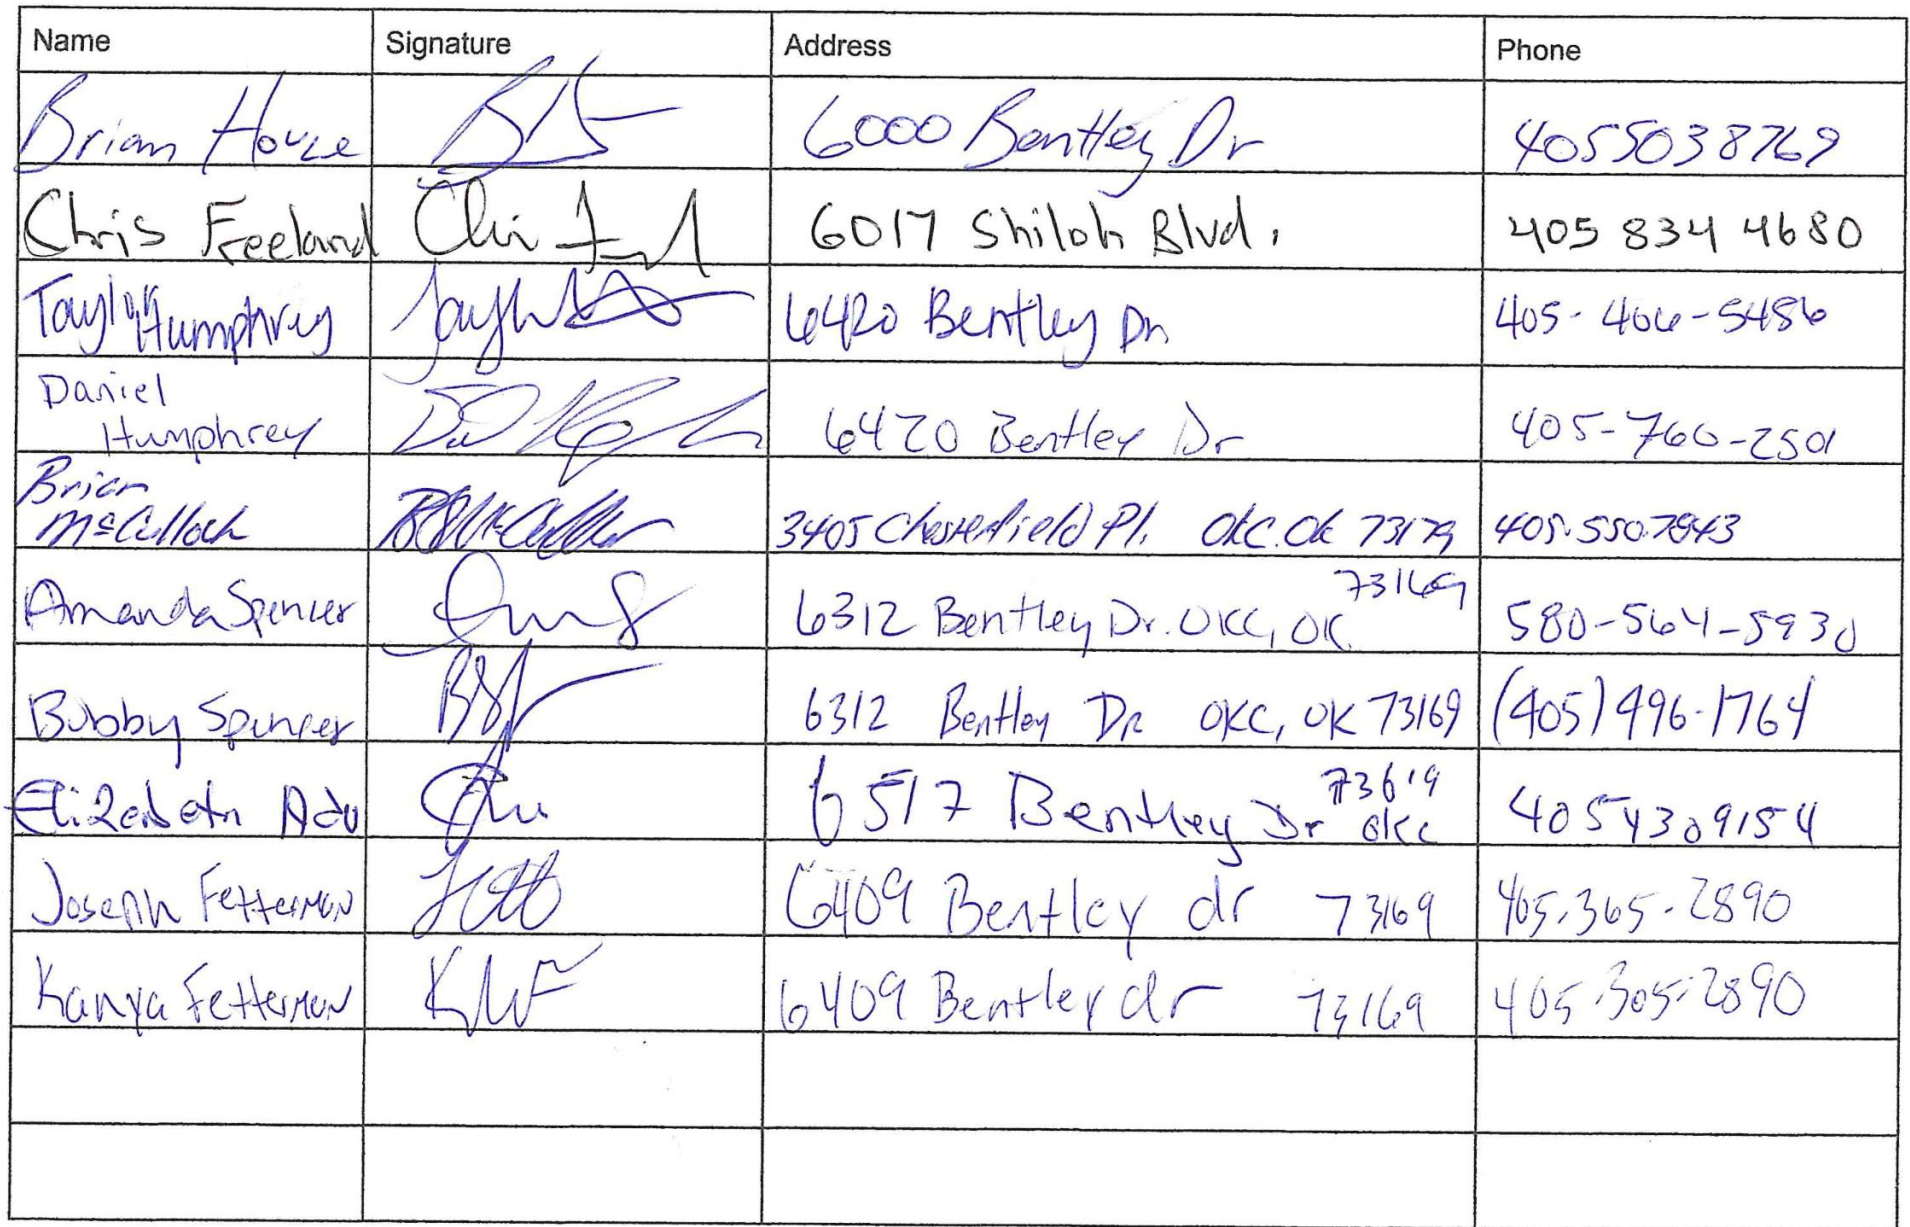 Name Signature Address Phone
Brian House 6000 Bentley Dr 4055038769
Chris Freeland 6017 Shiloh Blvd. 405 834 4680
Taylor Humphrey 6420 Bentley Dr 405-406-5486
Daniel
Humphrey 6420 Bentley Dr 405-760-2501
Brian
McCulloch 3405 Chesterfield Pl. OKC. OK 73179 405.550.7843
Amanda Spencer 6312 Bentley Dr. OKC, OK 73169 580-564-5930
Bobby Spencer 6312 Bentley Dr OKC, OK 73169 (405) 496-1764
Elizabeth Adu 6517 Bentley Dr 73619 OKC 4054309154
Joseph Fetterman 6409 Bentley dr 73169 405.365.2890
Kanya Fetterman 6409 Bentley dr 73169 405-305-2890